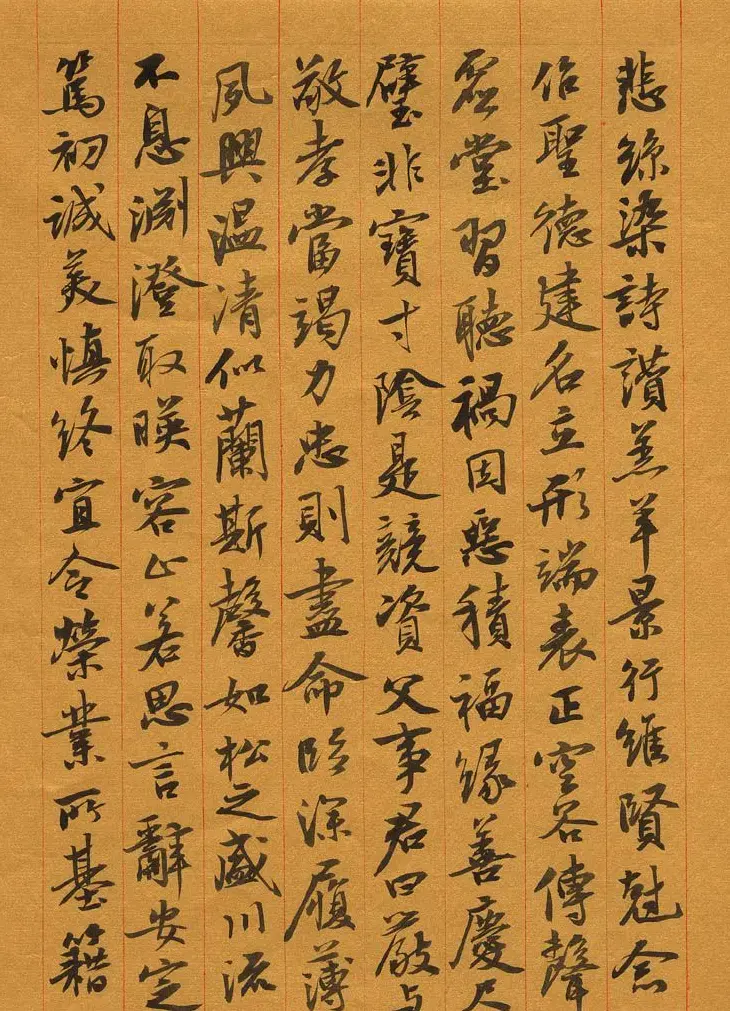 悲絲染詩讚羔羊景行維賢尅念
作聖德建名立形端表正空谷傳聲
虛堂習聽禍因惡積福緣善慶尺
璧非寶寸陰是競資父事君曰嚴与
敬孝當竭力忠則盡命臨深履薄
夙興溫清似蘭斯馨如松之盛川流
不息淵澄取暎容止若思言辭安定
篤初誠美慎終宜令榮業所基籍